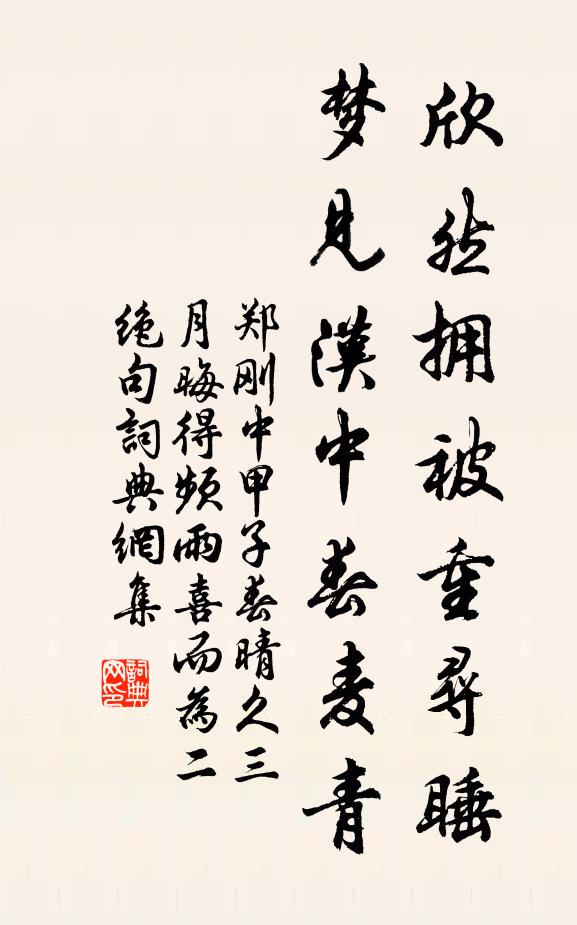 欣然拥被重寻睡
梦见漢中春麦青
郑刚中甲子春晴久三
月晦得频雨喜而為二
绝句詞典網集
詞典
网印